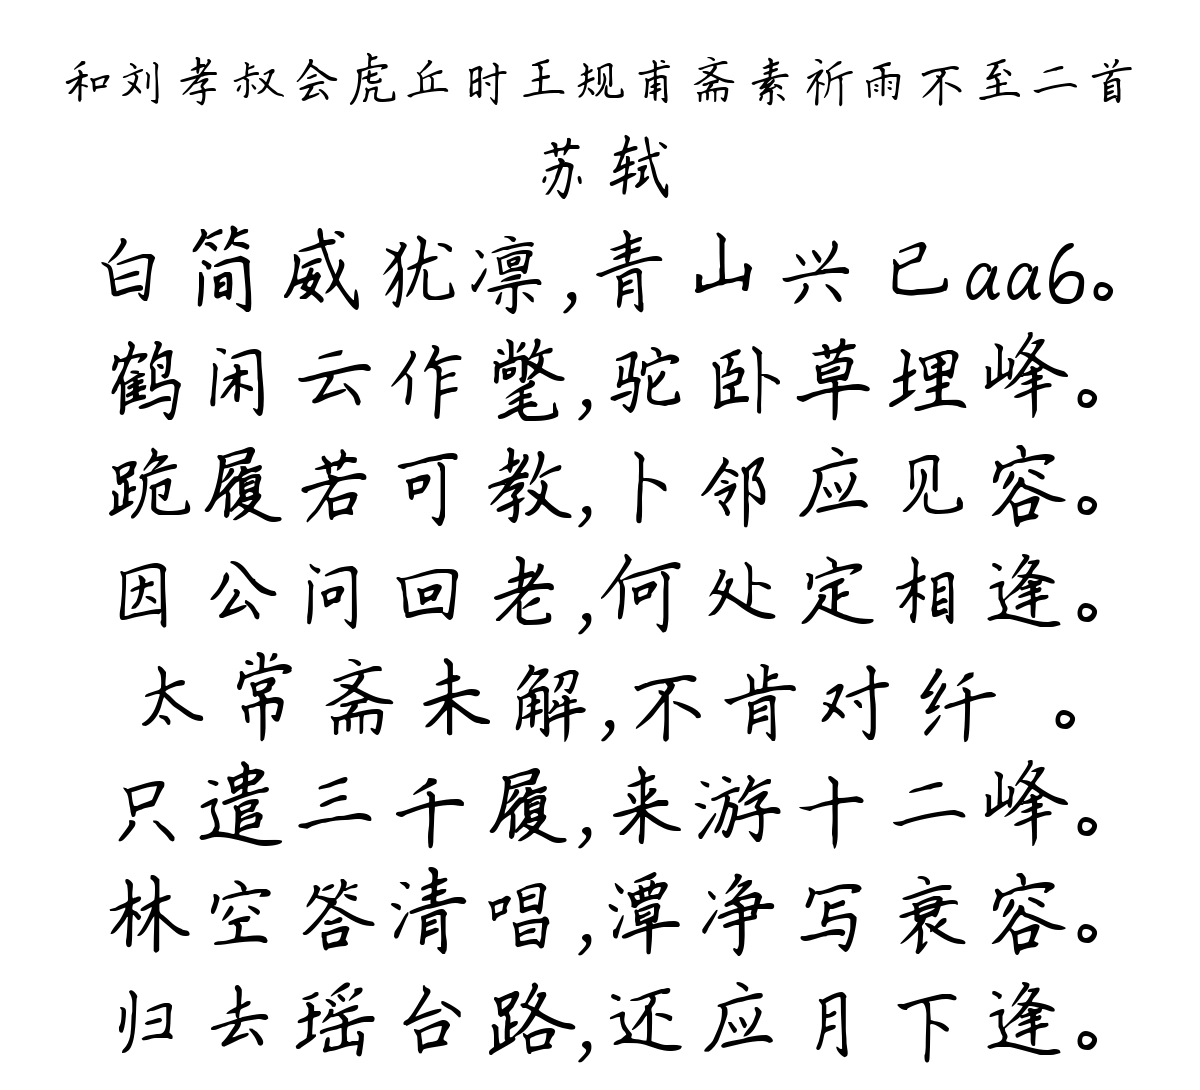 和刘孝叔会虎丘时王规甫斋素祈雨不至二首
苏轼
白简威犹凛,青山兴已aa6。
鹤闲云作氅,驼卧草埋峰。
跪履若可教,卜邻应见容。
因公问回老,何处定相逢。
太常斋未解,不肯对纤 。
只遣三千履,来游十二峰。
林空答清唱,潭净写衰容。
归去瑶台路,还应月下逢。